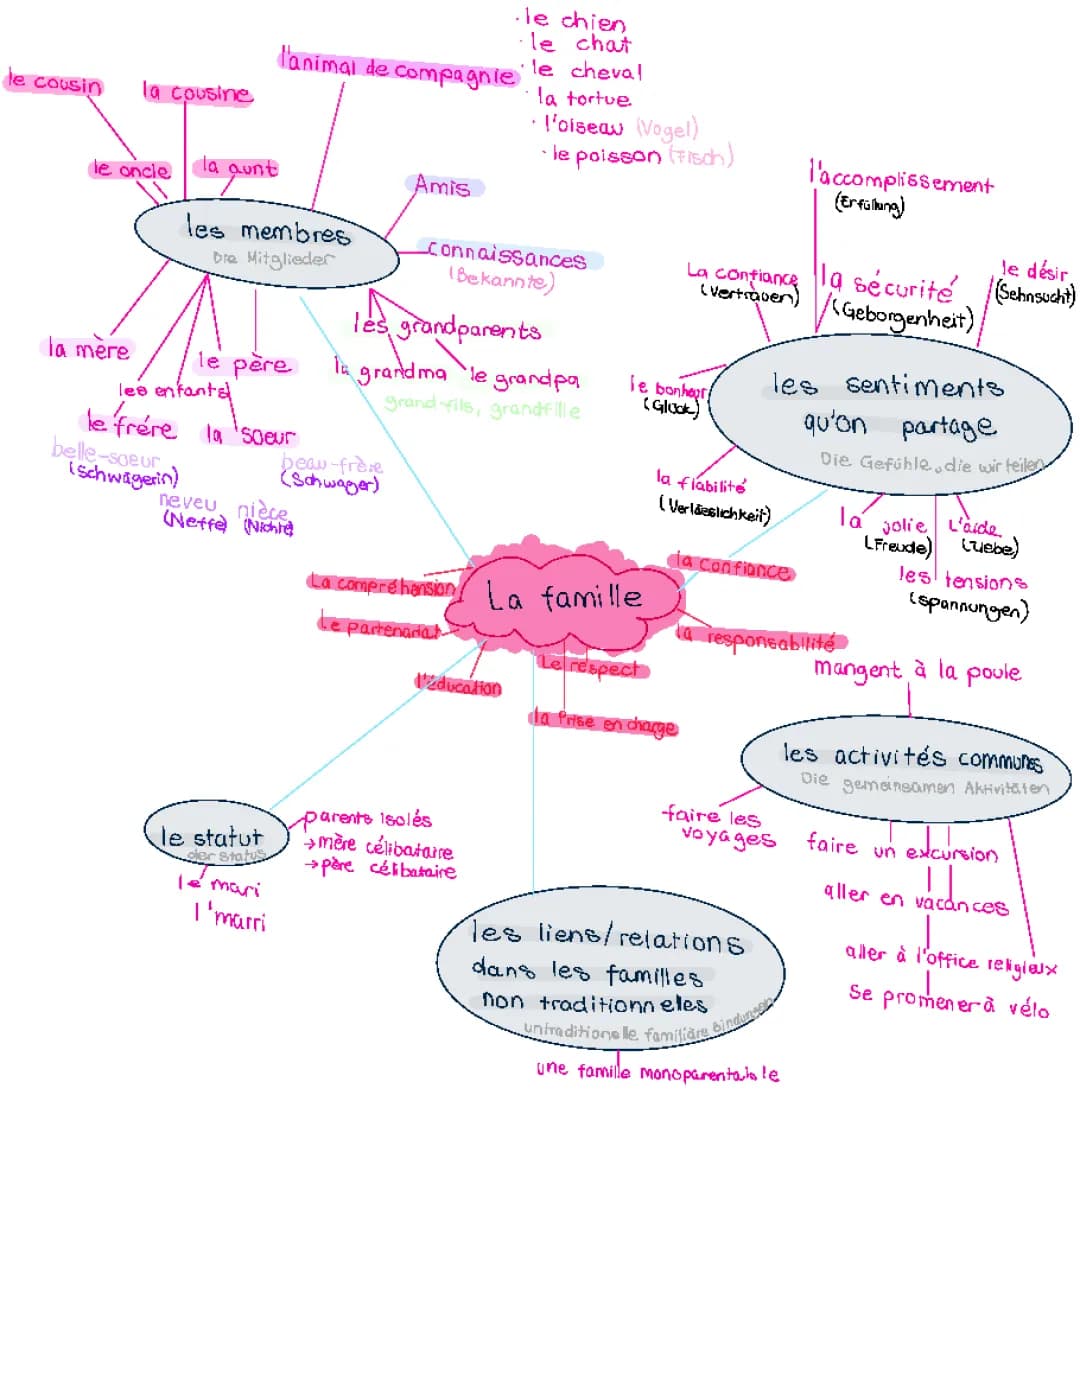 le chien
le chat
l'animal de compagnie
le cheval
le cousin
la cousine
la tortue
l'oiseau (Vogel)
le poisson (Fisch)
le oncle
la aunt
Amis
les membres
Die Mitglieder
connaissances
(Bekannte)
les grandparents
la grandma
le grandpa
grand-fils, grandfille
la mère
le père
les enfants
le frére
la soeur
belle-soeur
(Schwägerin)
beau-frère
(Schwager)
neveu
(Neffe)
nièce
(Nichte)
l'accomplissement
(Erfüllung)
La confiance
(Vertrauen)
la sécurité
(Geborgenheit)
le désir
(Sehnsucht)
le bonheur
(Glück)
les sentiments
qu'on partage
Die Gefühle, die wir teilen
la fiabilité
(Verlässlichkeit)
la jolie
(Freude)
L'aide
(Liebe)
les tensions
(Spannungen)
La famille
la confiance
La compréhension
Le partenariat
la responsabilité
Le respect
l'éducation
la Prise en charge
mangent à la poule
les activités communes
Die gemeinsamen Aktivitäten
faire les
voyages
faire un excursion
aller en vacances
aller à l'office religieux
Se promener à vélo
le statut
der Status
parents isolés
→mère célibataire
→père célibataire
le mari
l'marri
les liens/relations
dans les familles
non traditionneles
untraditionelle familiäre bindungen
une famille monoparentale